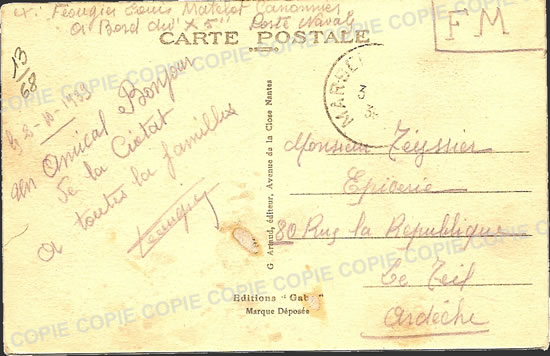 ex: Feougier Louis Matelot Canonnier
a Bord du "X 5" Poste Naval
FM
CARTE POSTALE
13/68
le 2-10-1939
un Amical Bonjour
de la Ciotat
a toutes la familles
Feougier
MARSEI
G Artaud, éditeur, Avenue de la Close Nantes
Monsieur Teyssier
Epicerie
80 Rue la Republique
Le Teil
Ardèche
Editions "Gaby"
Marque Déposée
COPIE COPIE COPIE COPIE COPIE COPIE